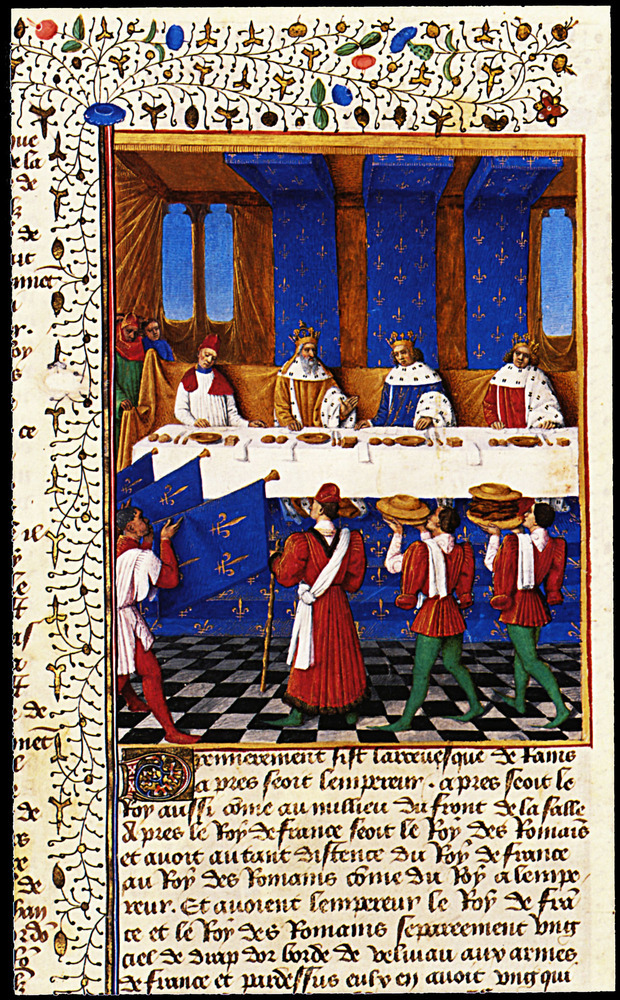 Premierement sist larcevesque de Rains
apres seoit lempereur. apres seoit le
Roy aussi cõme au millieu du front de la salle
Apres le Roy de france seoit le Roy des Romais
et avoit autant distence du Roy de france
au Roy des Romains cõme du Roy a lempe
reur. Et avoient lempereur le Roy de frã
ce et le Roy des Romains separeement ung
ciel de drap dor borde de veluiau aux armes
de france et pardessus eulx en avoit ung qui
que
de la
de
de
ce
il
de
de
de